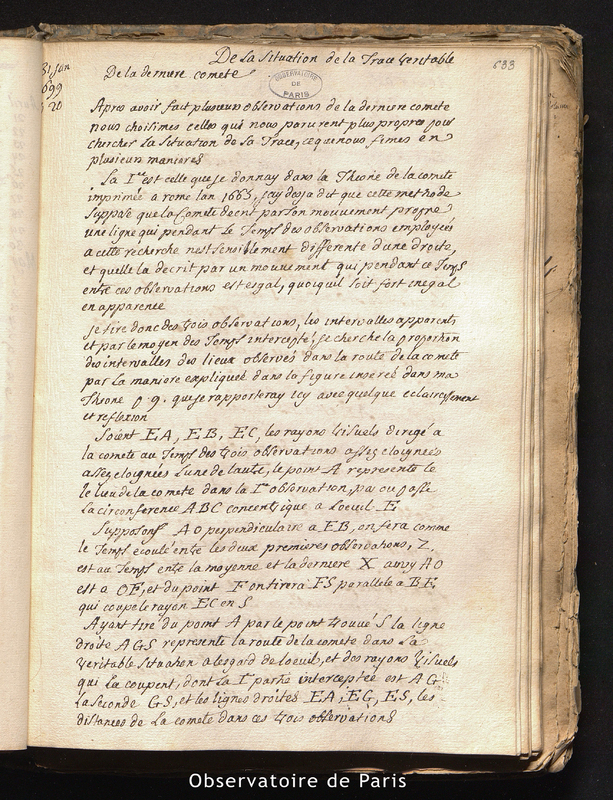 De La Situation de la Trace veritable
633
De la derniere comete
31 Jan
699
20
OBSERVATOIRE
DE
PARIS
Apres avoir fait plusieurs observations de la derniere comete
nous choisimes celles qui nous parurent plus propres pour
chercher La Situation de La Trace, ce que nous fimes en
plusieurs manieres
La I.re est celle que je donnay dans la Theorie de la comete
imprimée a rome lan 1665, jay desja dit que cette methode
suppose que la Comete decrit par son mouvement propre
une ligne qui pendant le Temps des observations employées
a cette recherche nest sensiblement differente dune droite,
et quelle la decrit par un mouvement qui pendant ce Temps
entre ces observations est esgal, quoiquil soit fort inegal
en apparence
je tire donc des trois observations, les intervalles apparents
et par le moyen des Temps interceptés, je cherche la proportion
des intervalles des lieux observés dans la route de la comete
par La maniere expliqueé dans la figure insereé dans ma
Theorie p. 9. que je rapporteray icy avec quelque eclaircissement
et reflexion
Soient EA, EB, EC, les rayons visuels dirigé a
la comete au Temps des trois observations assez eloigneés
assez eloignées lune de lautre, le point A represente le
le lieu de la comete dans la I.re observation, par ou passe
La circonference ABC concentrique a Loeuil E
Supposons AO perpendiculaire a EB, on fera comme
le Temps ecoulé entre les deux premieres observations, Z,
est au Temps entre la moyenne et la derniere X ainsy AO
est a OF, et du point F on tirera FS parallele a BE
qui coupe le rayon EC en S
Ayant tiré du point A par le point trouvé S la ligne
droite AGS represente la route de la comete dans La
veritable Situation a lesgard de loeuil, et des rayons visuels
qui La coupent, dont La I.re partie interceptée est AG
La seconde GS, et les lignes droites EA, EG, ES, les
distances de La comete dans ces trois observations
Observatoire de Paris